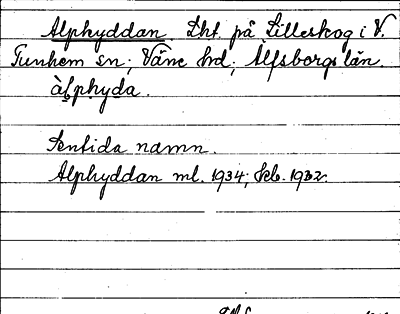 Alphyddan. Lht. på Lilleskog i V.
Tunhem sn; Väne hd; Älfsborgs län.
àl̥phyda.
Sentida namn.
Alphyddan ml. 1934; skb. 1932.